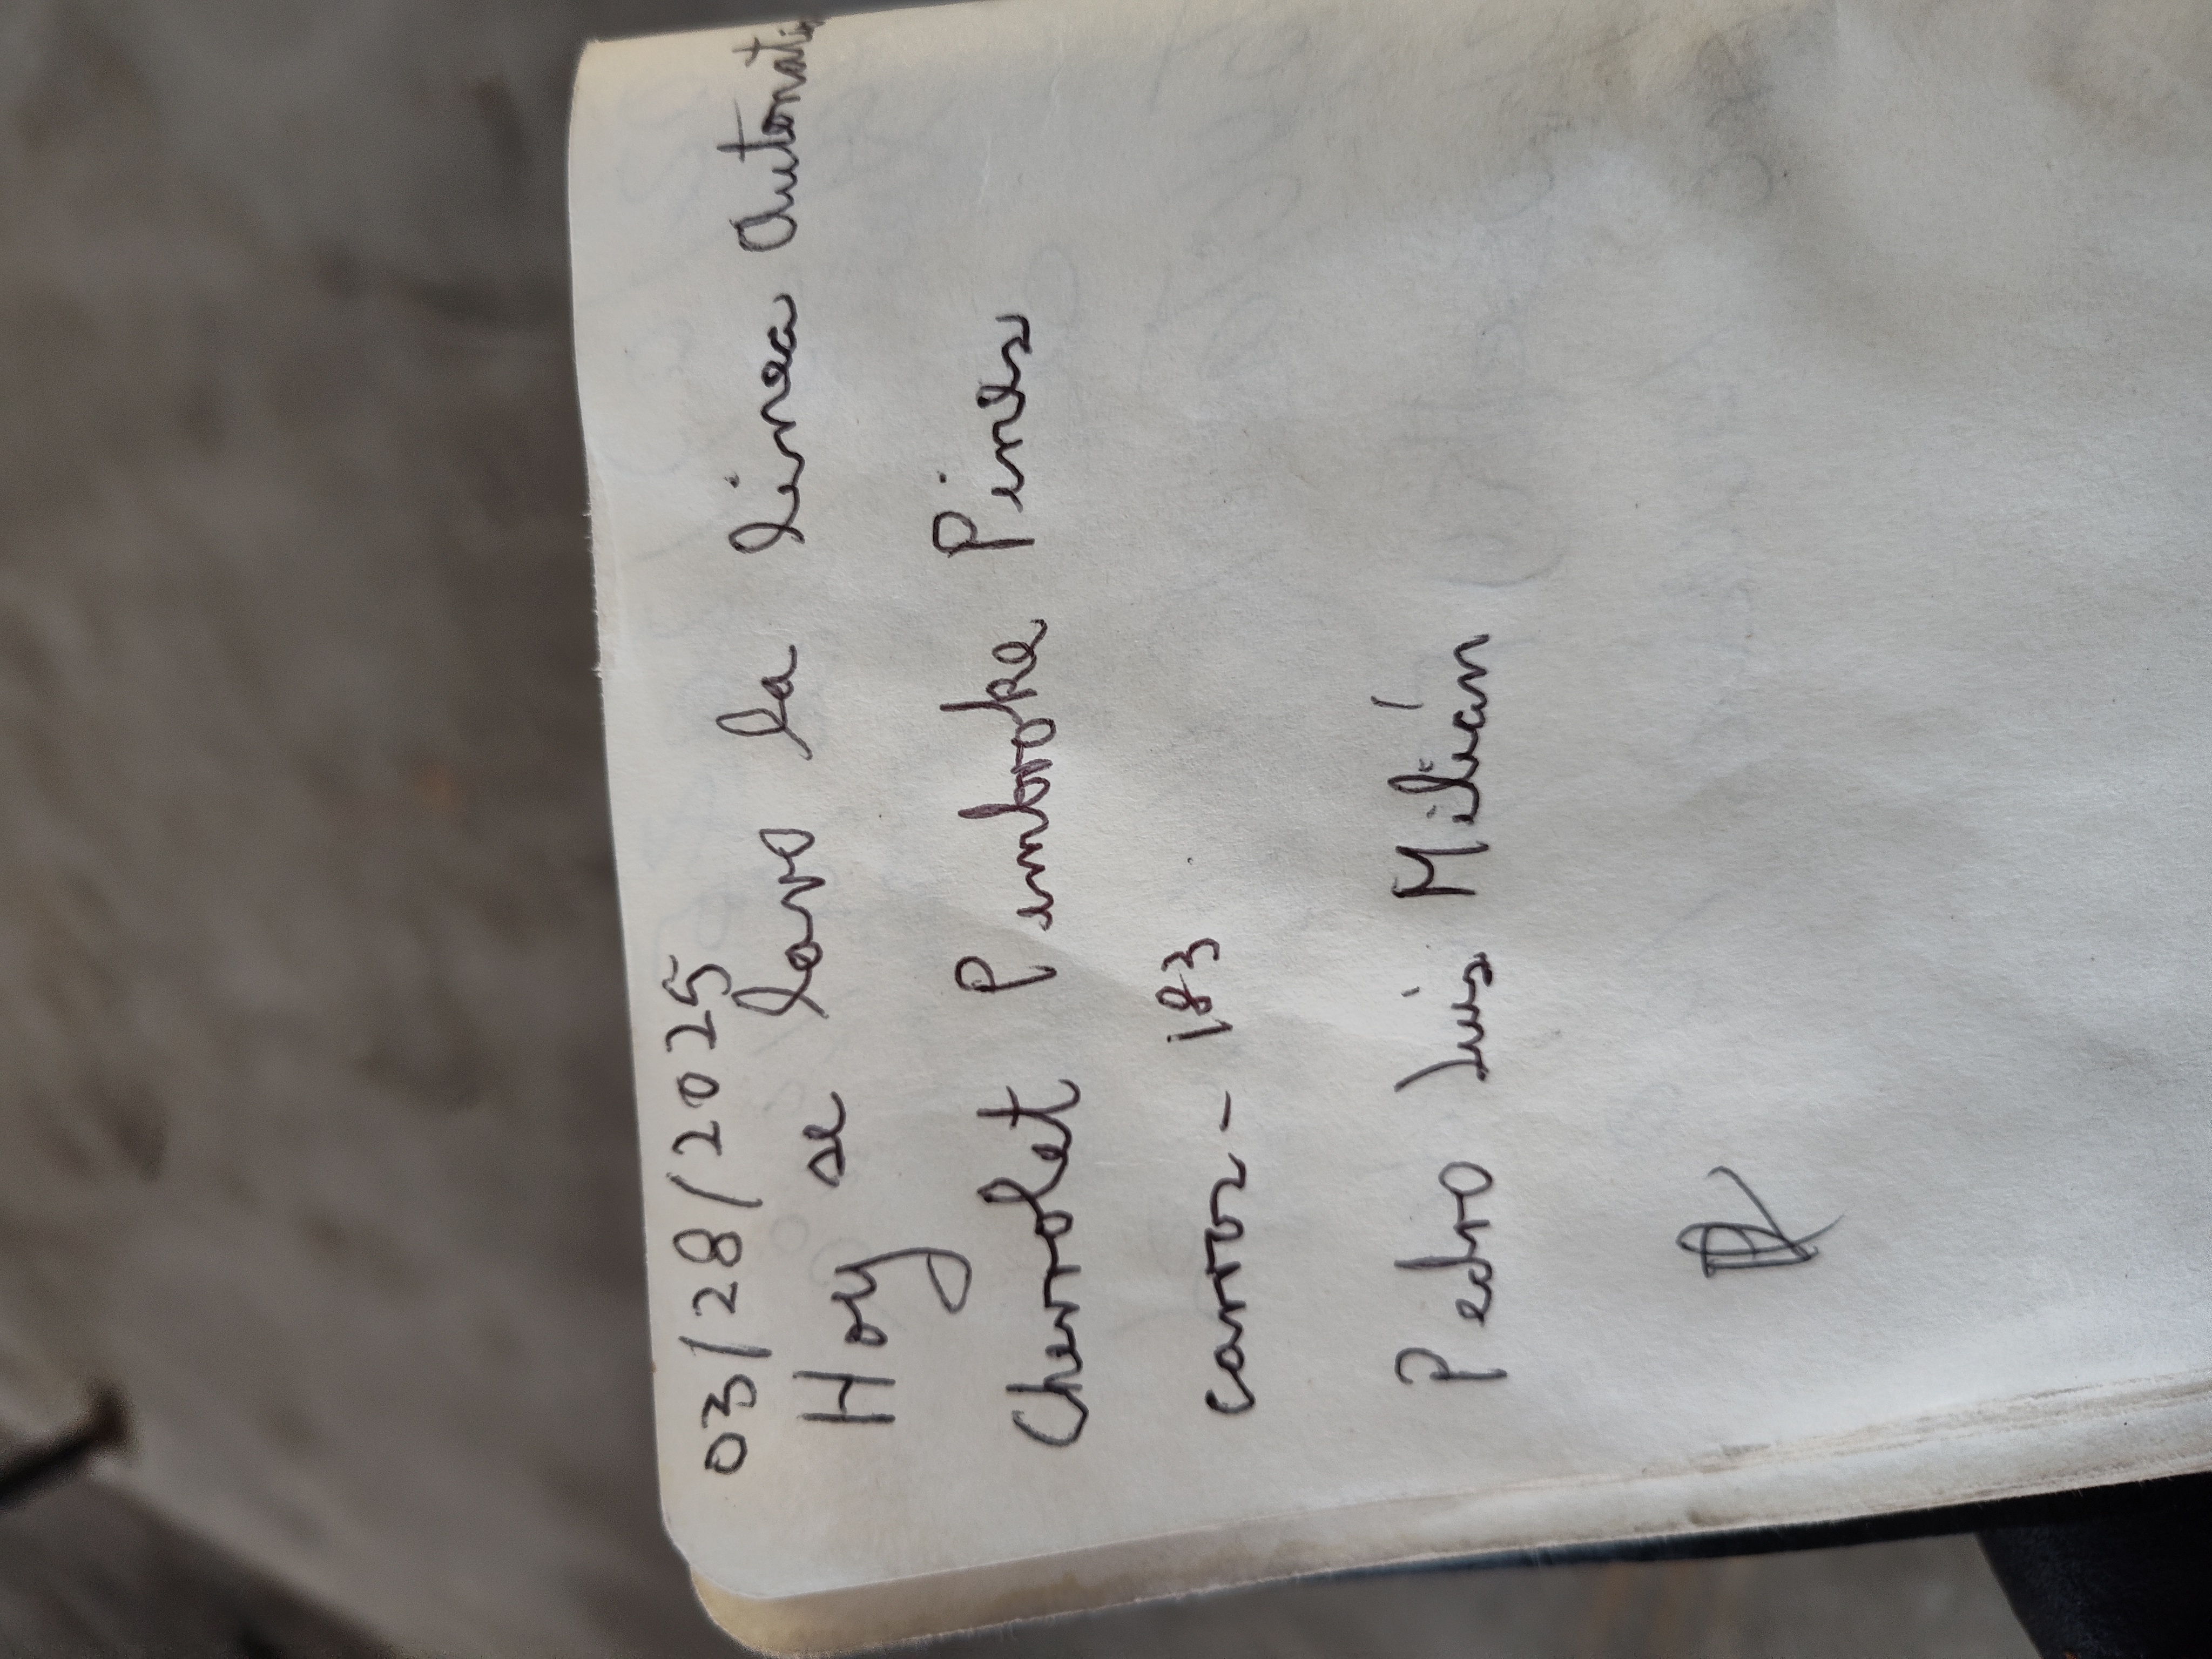 03/28/2025
Hoy se lavo la linea automati
Chevrolet Pembroke Pines
carros - 183
Pedro Luis Milián